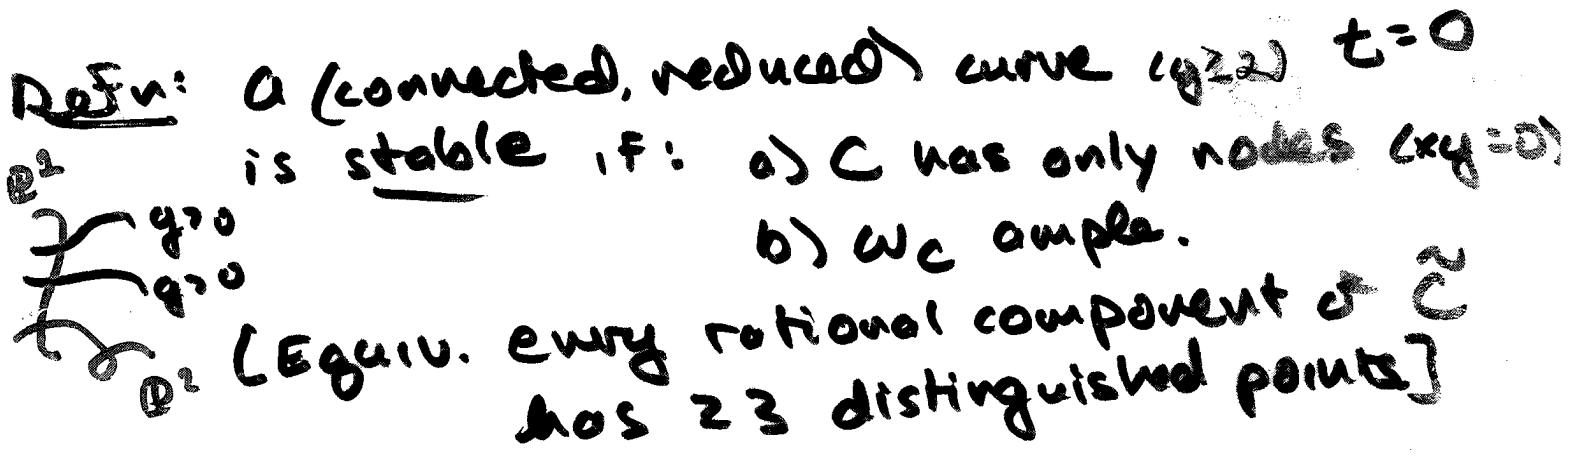 Defn: A (connected, reduced) curve (g≥2) t=0
is stable if: a) C has only nodes (xy=0)
ℙ¹
g>0
b) ω_C ample.
g>0
[Equiv. every rational component of C̃
ℙ¹
has ≥3 distinguished points]